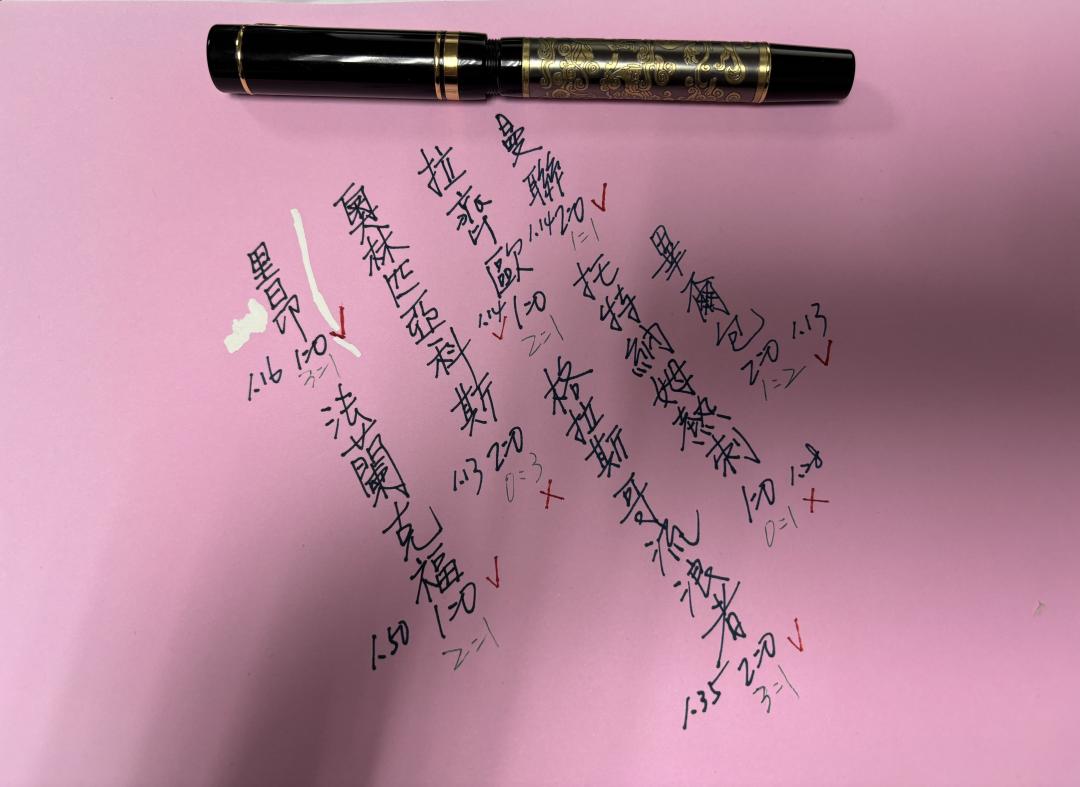 曼聯
1.14 2=0 √
1=1
畢爾包
2=0 1.13
1=2 √
拉齊歐
1.14 1=0
√ 2=1
托特納姆熱刺
1=0 1.28
0=1 ×
奧林匹亞科斯
1.13 2=0
0=3 ×
格拉斯哥流浪者
1.35 2=0 √
3=1
里昂
1.16 1=0 √
3=1
法蘭克福
1.50 1=0 √
2=1